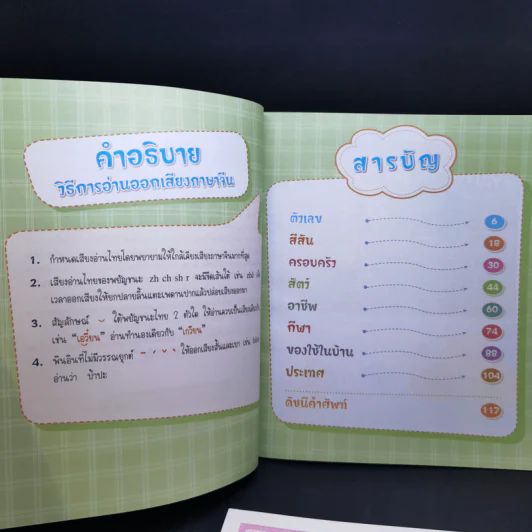 คำอธิบาย
วิธีการอ่านออกเสียงภาษาจีน
1. กำหนดเสียงอ่านไทยโดยพยายามให้ใกล้เคียงเสียงภาษาจีนมากที่สุด
2. เสียงอ่านไทยของพยัญชนะ zh ch sh r จะมีขีดเส้นใต้ เช่น zhū
เวลาออกเสียงให้ยกปลายลิ้นแตะเพดานปากแล้วปล่อยเสียงออกมา
3. สัญลักษณ์ ใต้พยัญชนะไทย 2 ตัวใด ให้อ่านควบเป็นเสียงเดียว
เช่น "เอวี๋ยน" อ่านทำนองเดียวกับ "เกวียน"
4. พินอินที่ไม่มีวรรณยุกต์ ˉ ˊ ˇ ˋ ให้ออกเสียงสั้นและเบา เช่น
อ่านว่า ป้าปะ
สารบัญ
ตัวเลข 6
สีสัน 18
ครอบครัว 30
สัตว์ 44
อาชีพ 60
กีฬา 74
ของใช้ในบ้าน 88
ประเทศ 104
ดัชนีคำศัพท์ 117